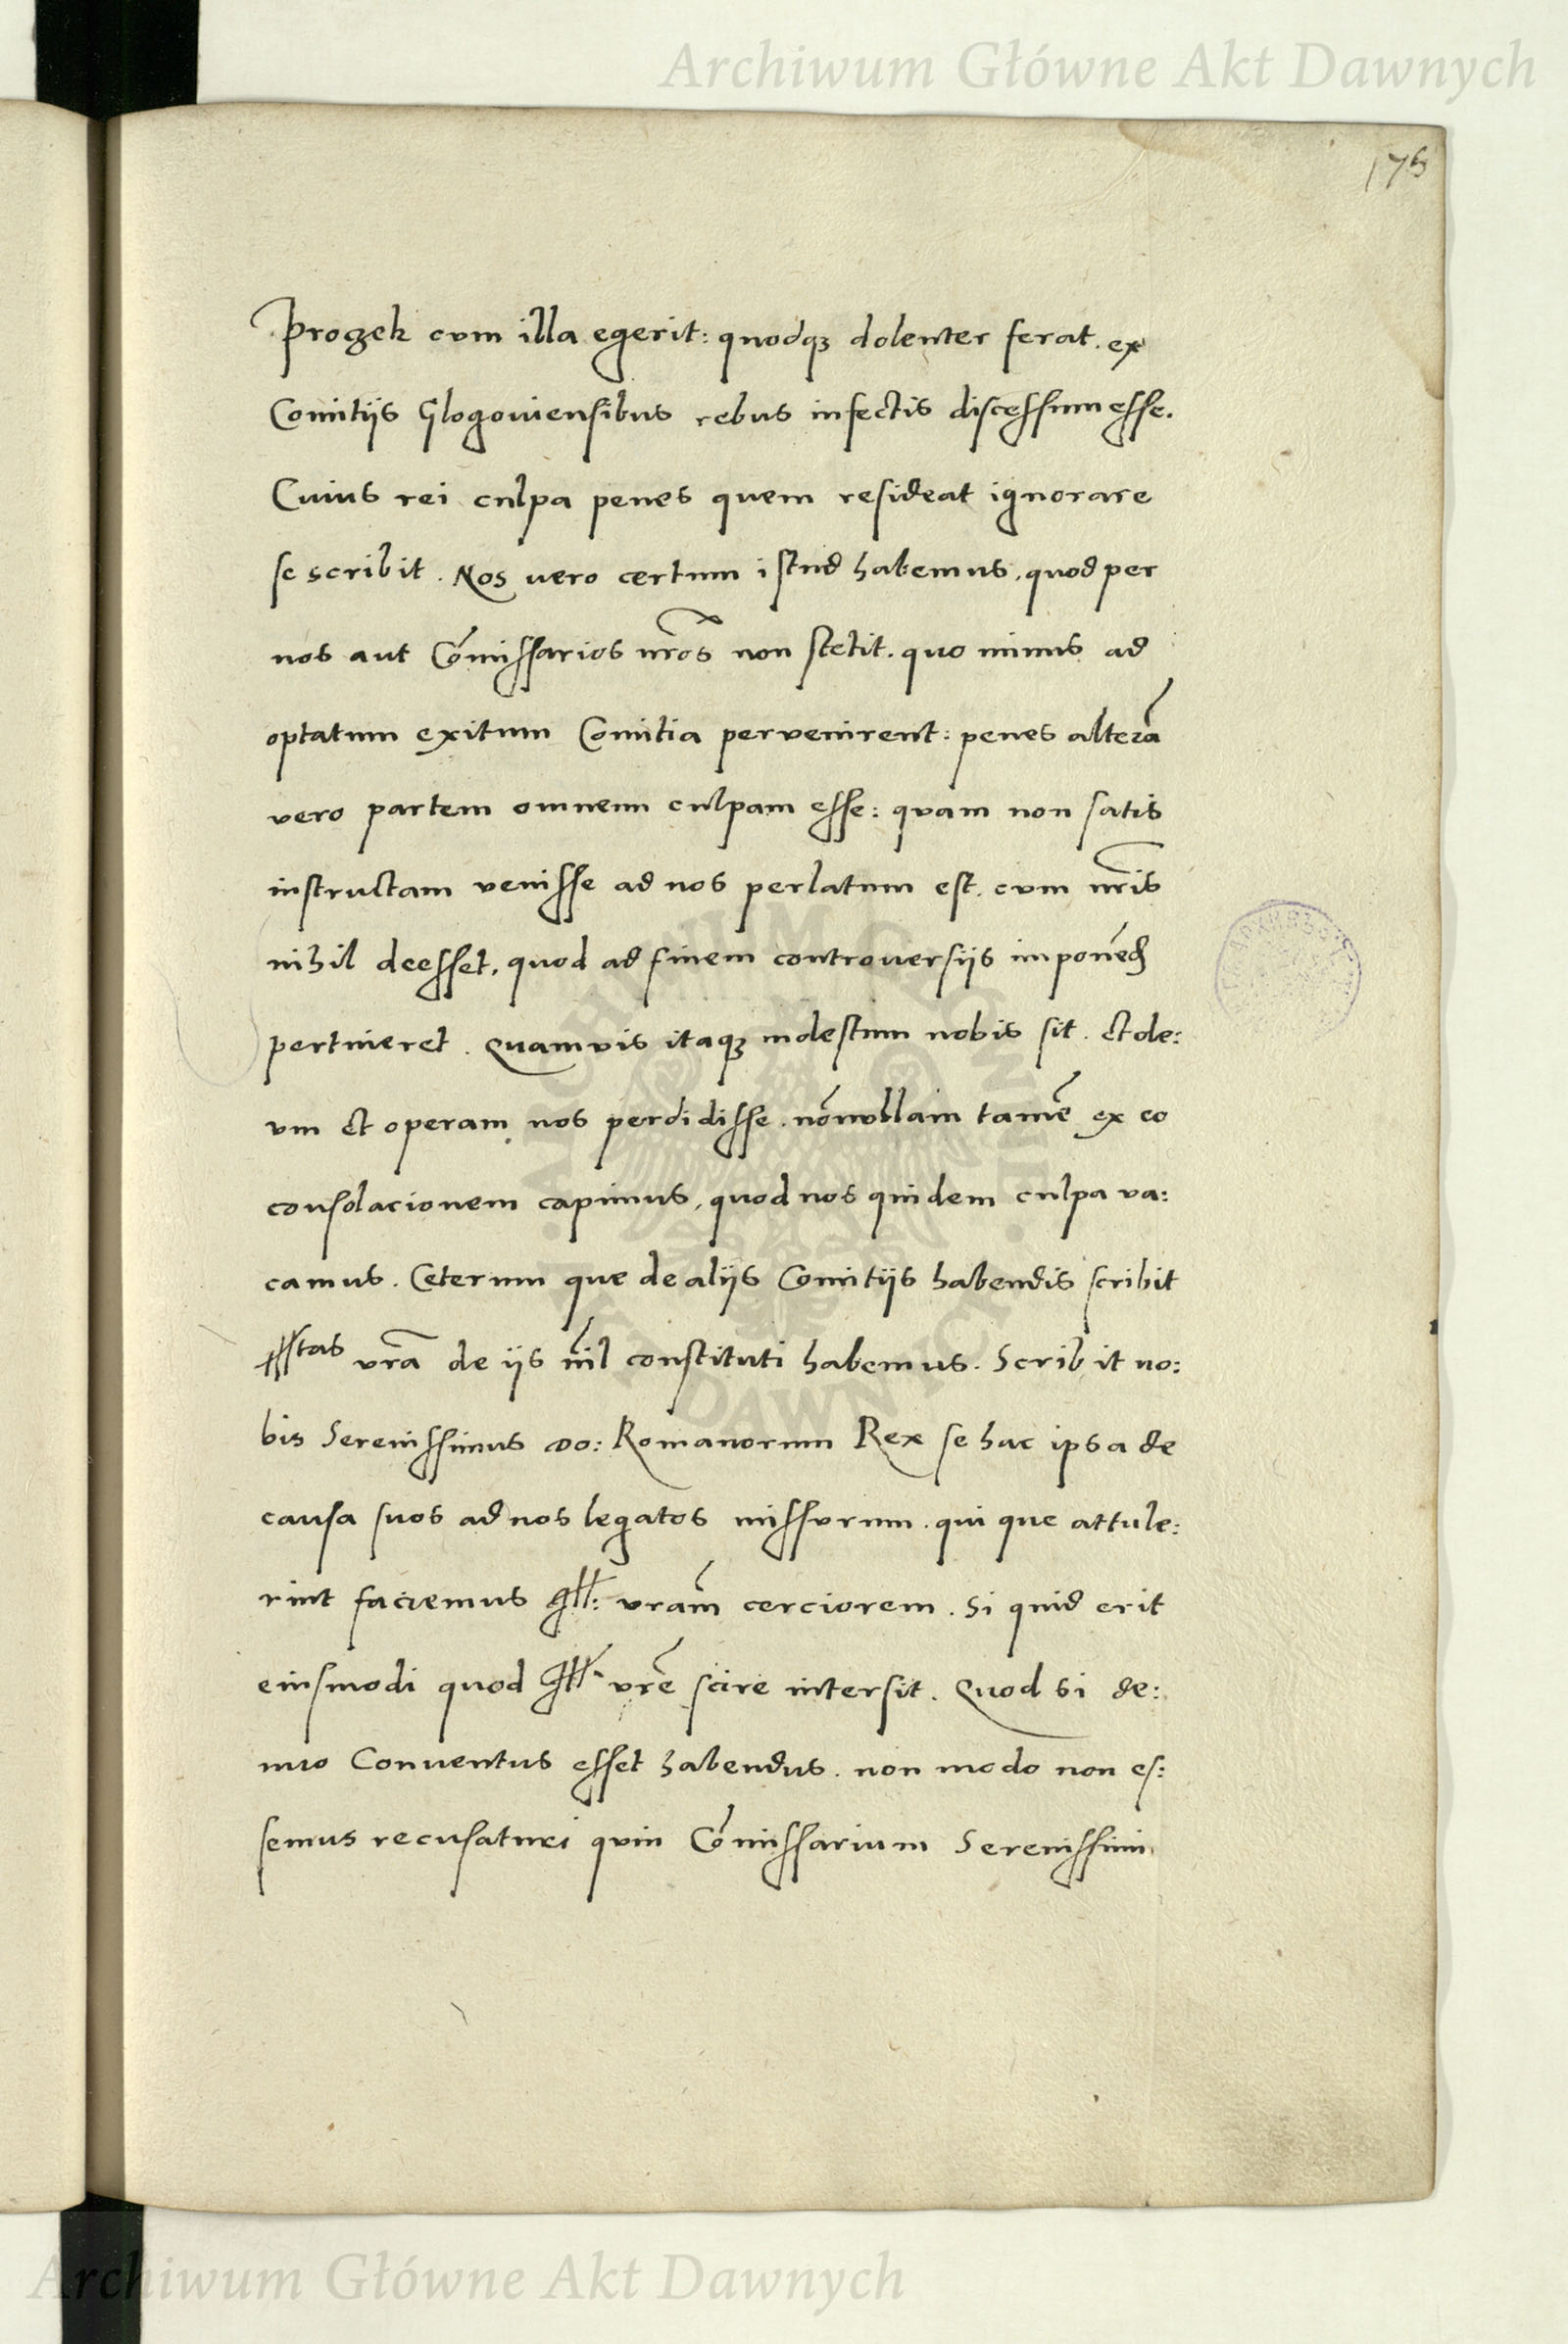 Archiwum Główne Akt Dawnych
175
Progek cvm illa egerit: quodqꝫ dolenter ferat. ex
Comitijs Glogouiensibus rebus infectis discessum esse.
Cuius rei culpa penes quem resideat ignorare
se scribit. Nos uero certum istud habemus, quod per
nos aut Cōmissarios nr̄os non stetit. quo minus ad
optatum exitum Comitia pervenirent: penes alterā
vero partem omnem culpam esse: quam non satis
instructam venisse ad nos perlatum est. cvm nr̄is
nihil deesset, quod ad finem controuersijs imponēd
pertineret. Quamvis itaqꝫ molestum nobis sit. et ole:
vm et operam nos perdidisse. nōnvllam tamē ex eo
consolacionem capimus, quod nos quidem culpa va:
camus. Ceterum que de alijs Comitijs habendis scribit
Illtas vr̄a de ijs nīl constituti habemus. Scribit no:
bis Serenissimus do: Romanorum Rex se hac ipsa de
causa suos ad nos legatos missvrum. qui que attule:
rint faciemus Ill: vram̄ cerciorem. Si quid erit
eiusmodi quod Ill. vrē scire intersit. Quod si de:
nuo Conuentus esset habendus. non modo non es:
semus recusaturi qvin Cōmissarium Serenissimi
Archiwum Główne Akt Dawnych